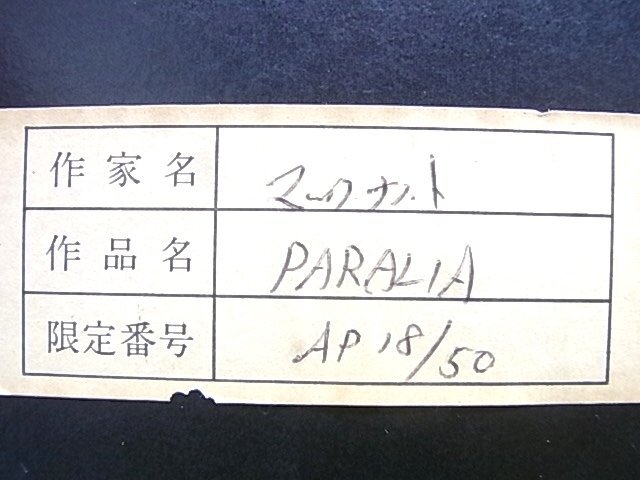 作家名 マックナット
作品名 PARALIA
限定番号 AP 18/50